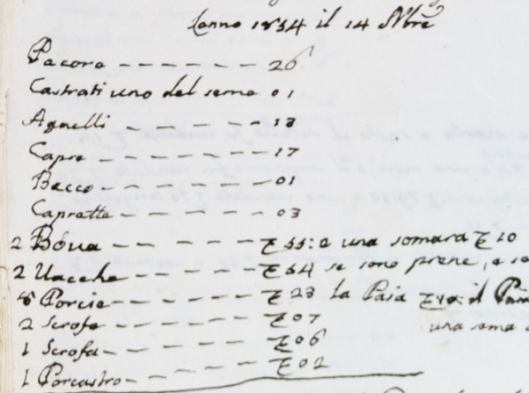 Lanno 1854 il 14 Nbre
Pacora - - - - - - 26
Castrati uno del seme 01
Agnelli - - - - - - 18
Capre - - - - - - 17
Becco - - - - - - 01
Caprette - - - - - 03
2 Bóva - - - - - - £ 55: e una somara £ 10
2 Uacche - - - - - £ 54 se sono prene, e se
8 Porcie - - - - - £ 23 la Paia il
2 Scrofe - - - - - £ 07 una
1 Scrofa - - - - - £ 06
1 Porcastro - - - - £ 02